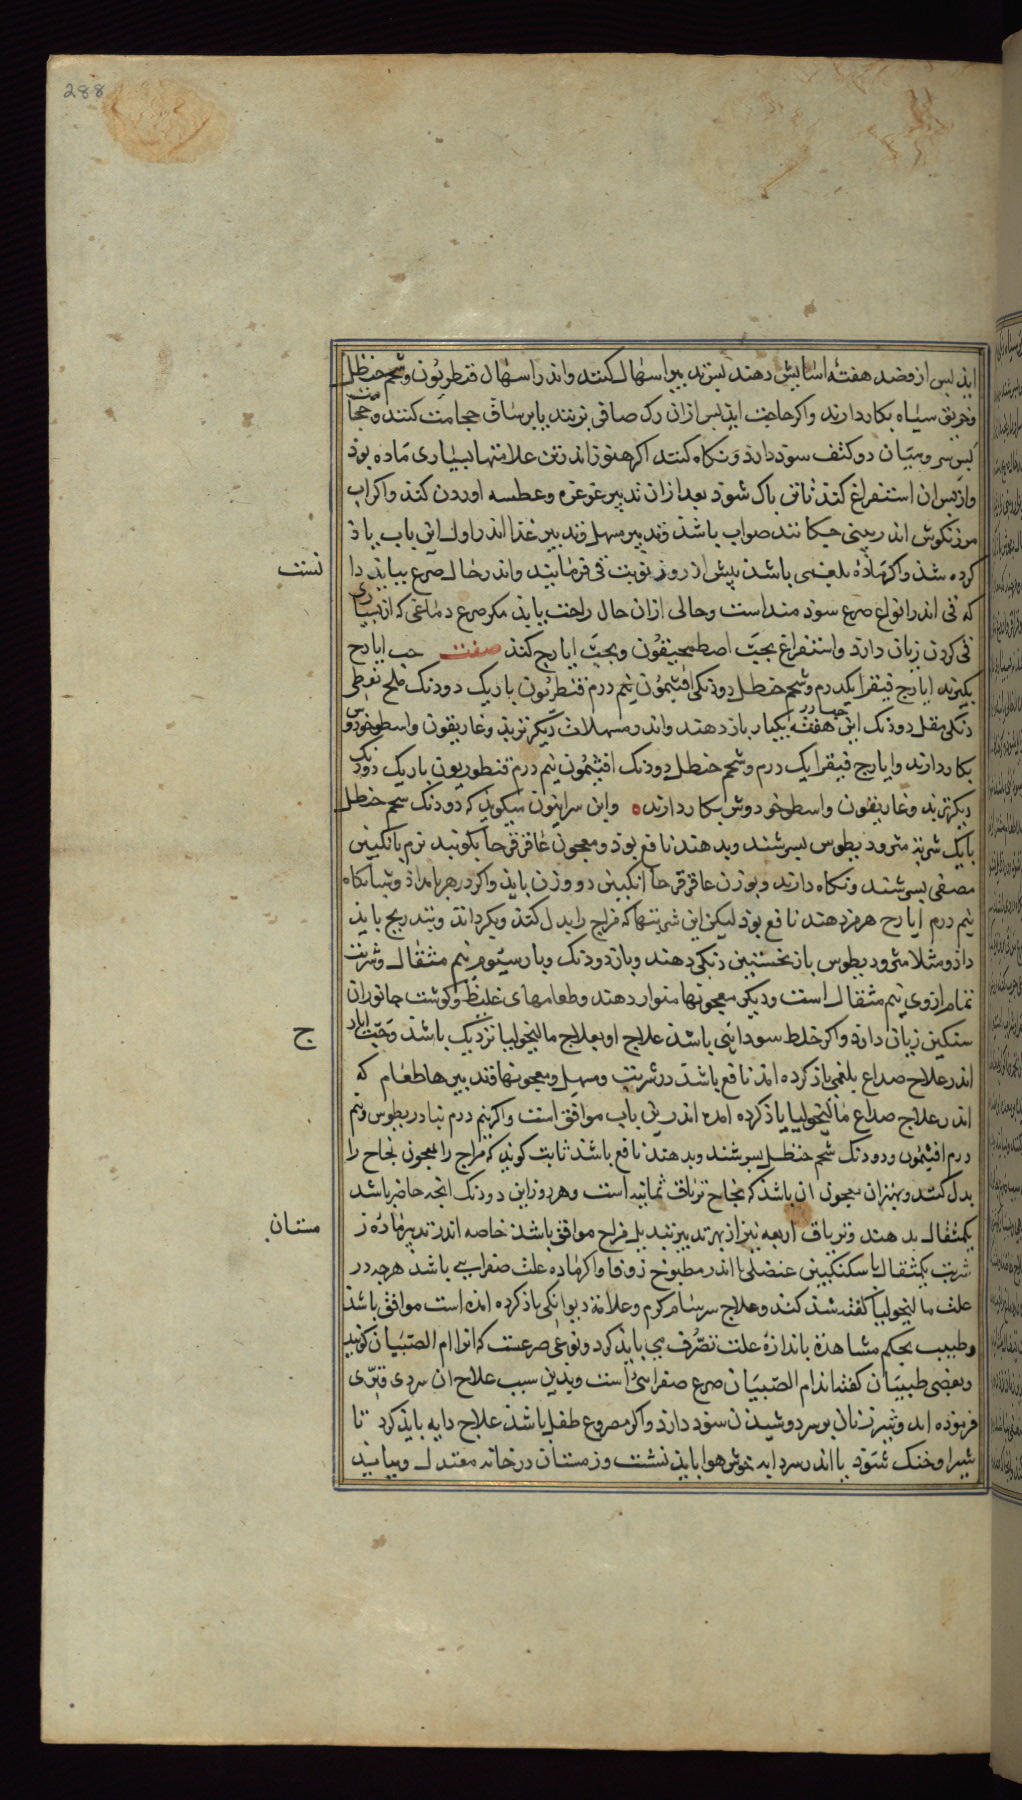 288
اید پس از فصد هفتهٔ اسایش دهند پس تدبیر اسهال کنند واندر اسهال قنطریون وشحم حنظل
وخربق سیاه بکار دارند واکر حاجت اید پس ازان رک صافن بزنند یا بر ساق حجامت کنند وحجامت
پس سر ومیان دو کتف سود دارد ونکاه کنند اکر هنوز اندر تن علامتها بسیاری ماده بود
واز پس ان استفراغ کنند تا تن پاک شود بعد ازان تدبیر غرغره وعطسه اوردن کنند واکر اب
مرزنکوش اندر بینی چکانند صواب باشد وتدبیر مسهل وتدبیر غذا اندر اول این باب یاد
کرده شد واکر مادهٔ بلغمی باشد پیش از روز نوبت قی فرمایند واندر حال صرع نباید دا
نست
که قی اندر انواع صرع سودمند است وحالی ازان حال راحت یابد مکر صرع دماغی که از بسیاری
قی کردن زیان دارد واستفراغ بحب اصطمخیقون وبحب ایارج کنند صفت حب ایارج
بکیرند ایارج فیقرا یکدرم وشحم حنظل دودنکی افثیمون نیم درم قنطریون باریک دودنک ملح نفطی
دنکی مقل دودنک این هفته یکبار باز دهند واندر مسهلات دیکر تربد وغاریقون واسطوخودوس
بکار دارند وایارج فیقرا یک درم وشحم حنظل دودنک افثیمون نیم درم قنطوریون باریک دودنک
دیکر تربد وغاریقون واسطوخودوش بکار دارنده وابن سرابیون میکوید که دودنک شحم حنظل
با یک شربة مثرودیطوس بسرشند وبدهند نافع بود ومعجون عاقرقرحا بکوبند نرم بانکبین
مصفی بسرشند ونکاه دارند وبوزن عاقرقرحا انکبین دو وزن باید واکر در هر بامداد وشبانکاه
نیم درم ایارج هرمز دهند نافع بود لیکن این شربتها که مزاج را بدل کند وبکرداند وبتدریج باید
داد ومثلا مثرودیطوس بار نخستین دنکی دهند وباز دودنک وبار سیوم نیم مثقال وشربت
تمام ازوی نیم مثقال است ودیکر معجونها متواتر دهند وطعامهای غلیظ وکوشت جانوران
سنکین زیان دارد واکر خلط سودایی باشد علاج او بعلاج مالیخولیا نزدیک باشد وحب ایار
ج
اندر علاج صداع بلغمی یاذ کرده امد نافع باشد در شربت ومسهل ومعجونها وتدبیرها طعام که
اندر علاج صداع مالیخولیا یاذ کرده امده اندرین باب موافق است واکر نیم درم تیادریطوس ونیم
درم افیثمون ودودنک شحم حنظل بسرشند وبدهند نافع باشد ثابت کوید که مزاج را معجون نجاح را
بدل کند وبهترین معجون ان باشد که نجاح تریاق ثمانیه است وهر روز این دودنک انجه حاضر باشد
یکمثقال بدهند وتریاق اربعه نیز از بهر تدبیر تبدیل مزاج موافق باشد خاصه اندر تدبیر ماده ز
مستان
شربت یکمثقال با سکنکبین عنصلی یا اندر مطبوخ زوفا واکر ماده علت صفرایی باشد هرچه در
علت مالیخولیا کفته شد کند وعلاج سرسام کرم وعلامة دیوانکی یاذ کرده امده است موافق باشد
وطبیب بحکم مشاهدة باندازهٔ علت تصرف می باید کرد ونوعی صرعست که انرا ام الصبیان کویند
وبعضی طبیبان کفته اند ام الصبیان صرع صفرایی است وبدین سبب علاج ان سردی وتری
فرموده اند وشیر زنان بر سر دوشیدن سود دارد واکر مصروع طفل باشد علاج دایه باید کرد تا
شیر او خنک شود یا اندر سردابه خوش هوا باید نشست وزمستان در خانه معتدل ومیانه